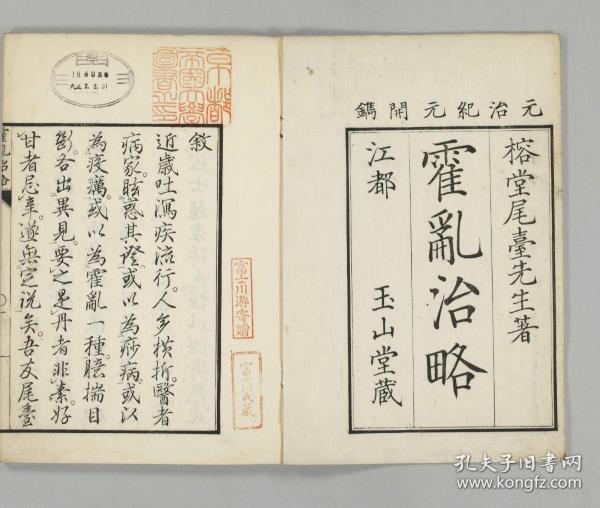 元治紀元開鐫
榕堂尾臺先生著
霍亂治略
江都 玉山堂藏
京都
帝國大學
圖書之印
184026
大正7.3.31
富士川游寄贈
富士川氏藏
敘
近歲吐瀉疾流行。人多橫折。醫者
病家。眩惑其證。或以為痧病。或以
為疫癘。或以為霍亂一種。臆揣目
斷。各出異見。要之是丹者非素。好
甘者忌辛。遂無定說矣。吾友尾臺
霍亂治略
孔夫子旧书网
www.kongfz.com